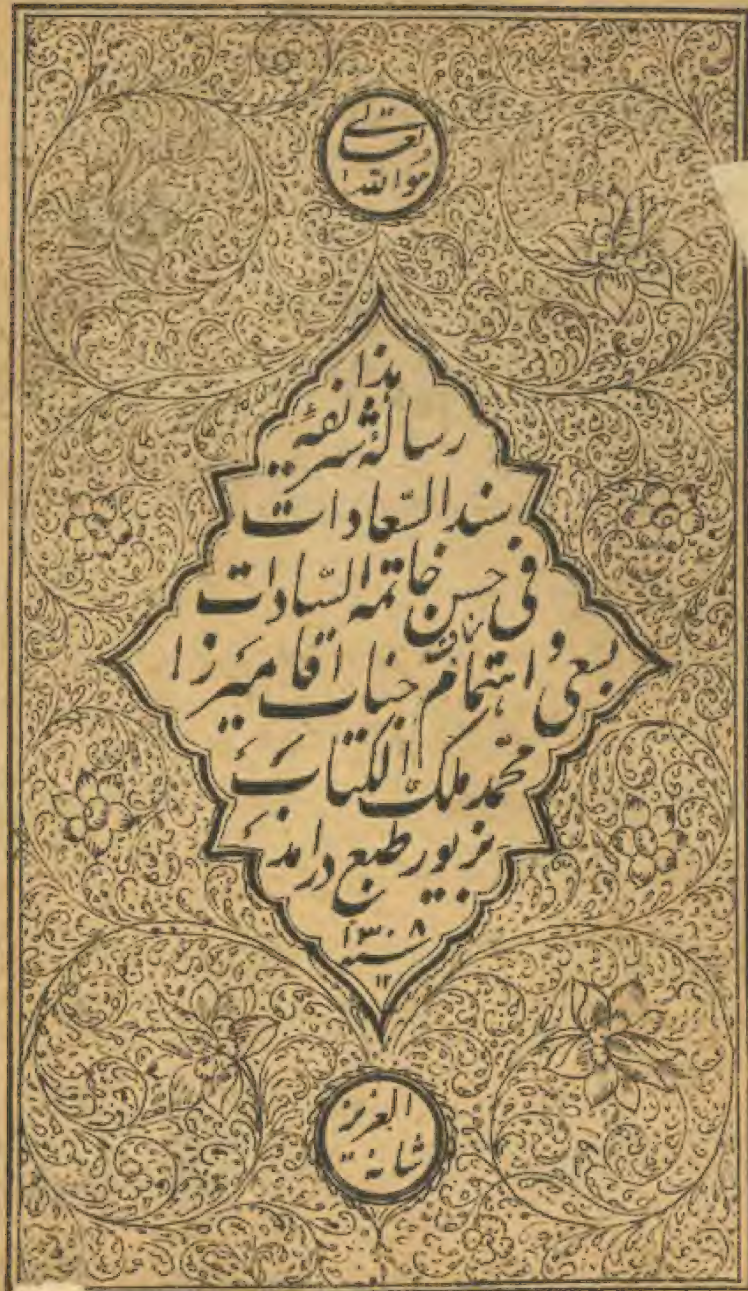 هو الله
تعالی
هذا
رسالهٔ شریفهٔ
سند السّعادات
فی حسن خاتمه السّادات
بسعی و اهتمام جناب آقا میرزا
محمّد ملک الکتاب
بزیور طبع درآمد
سنه ۱۳۰۸
۱۲
العزیز
شانه